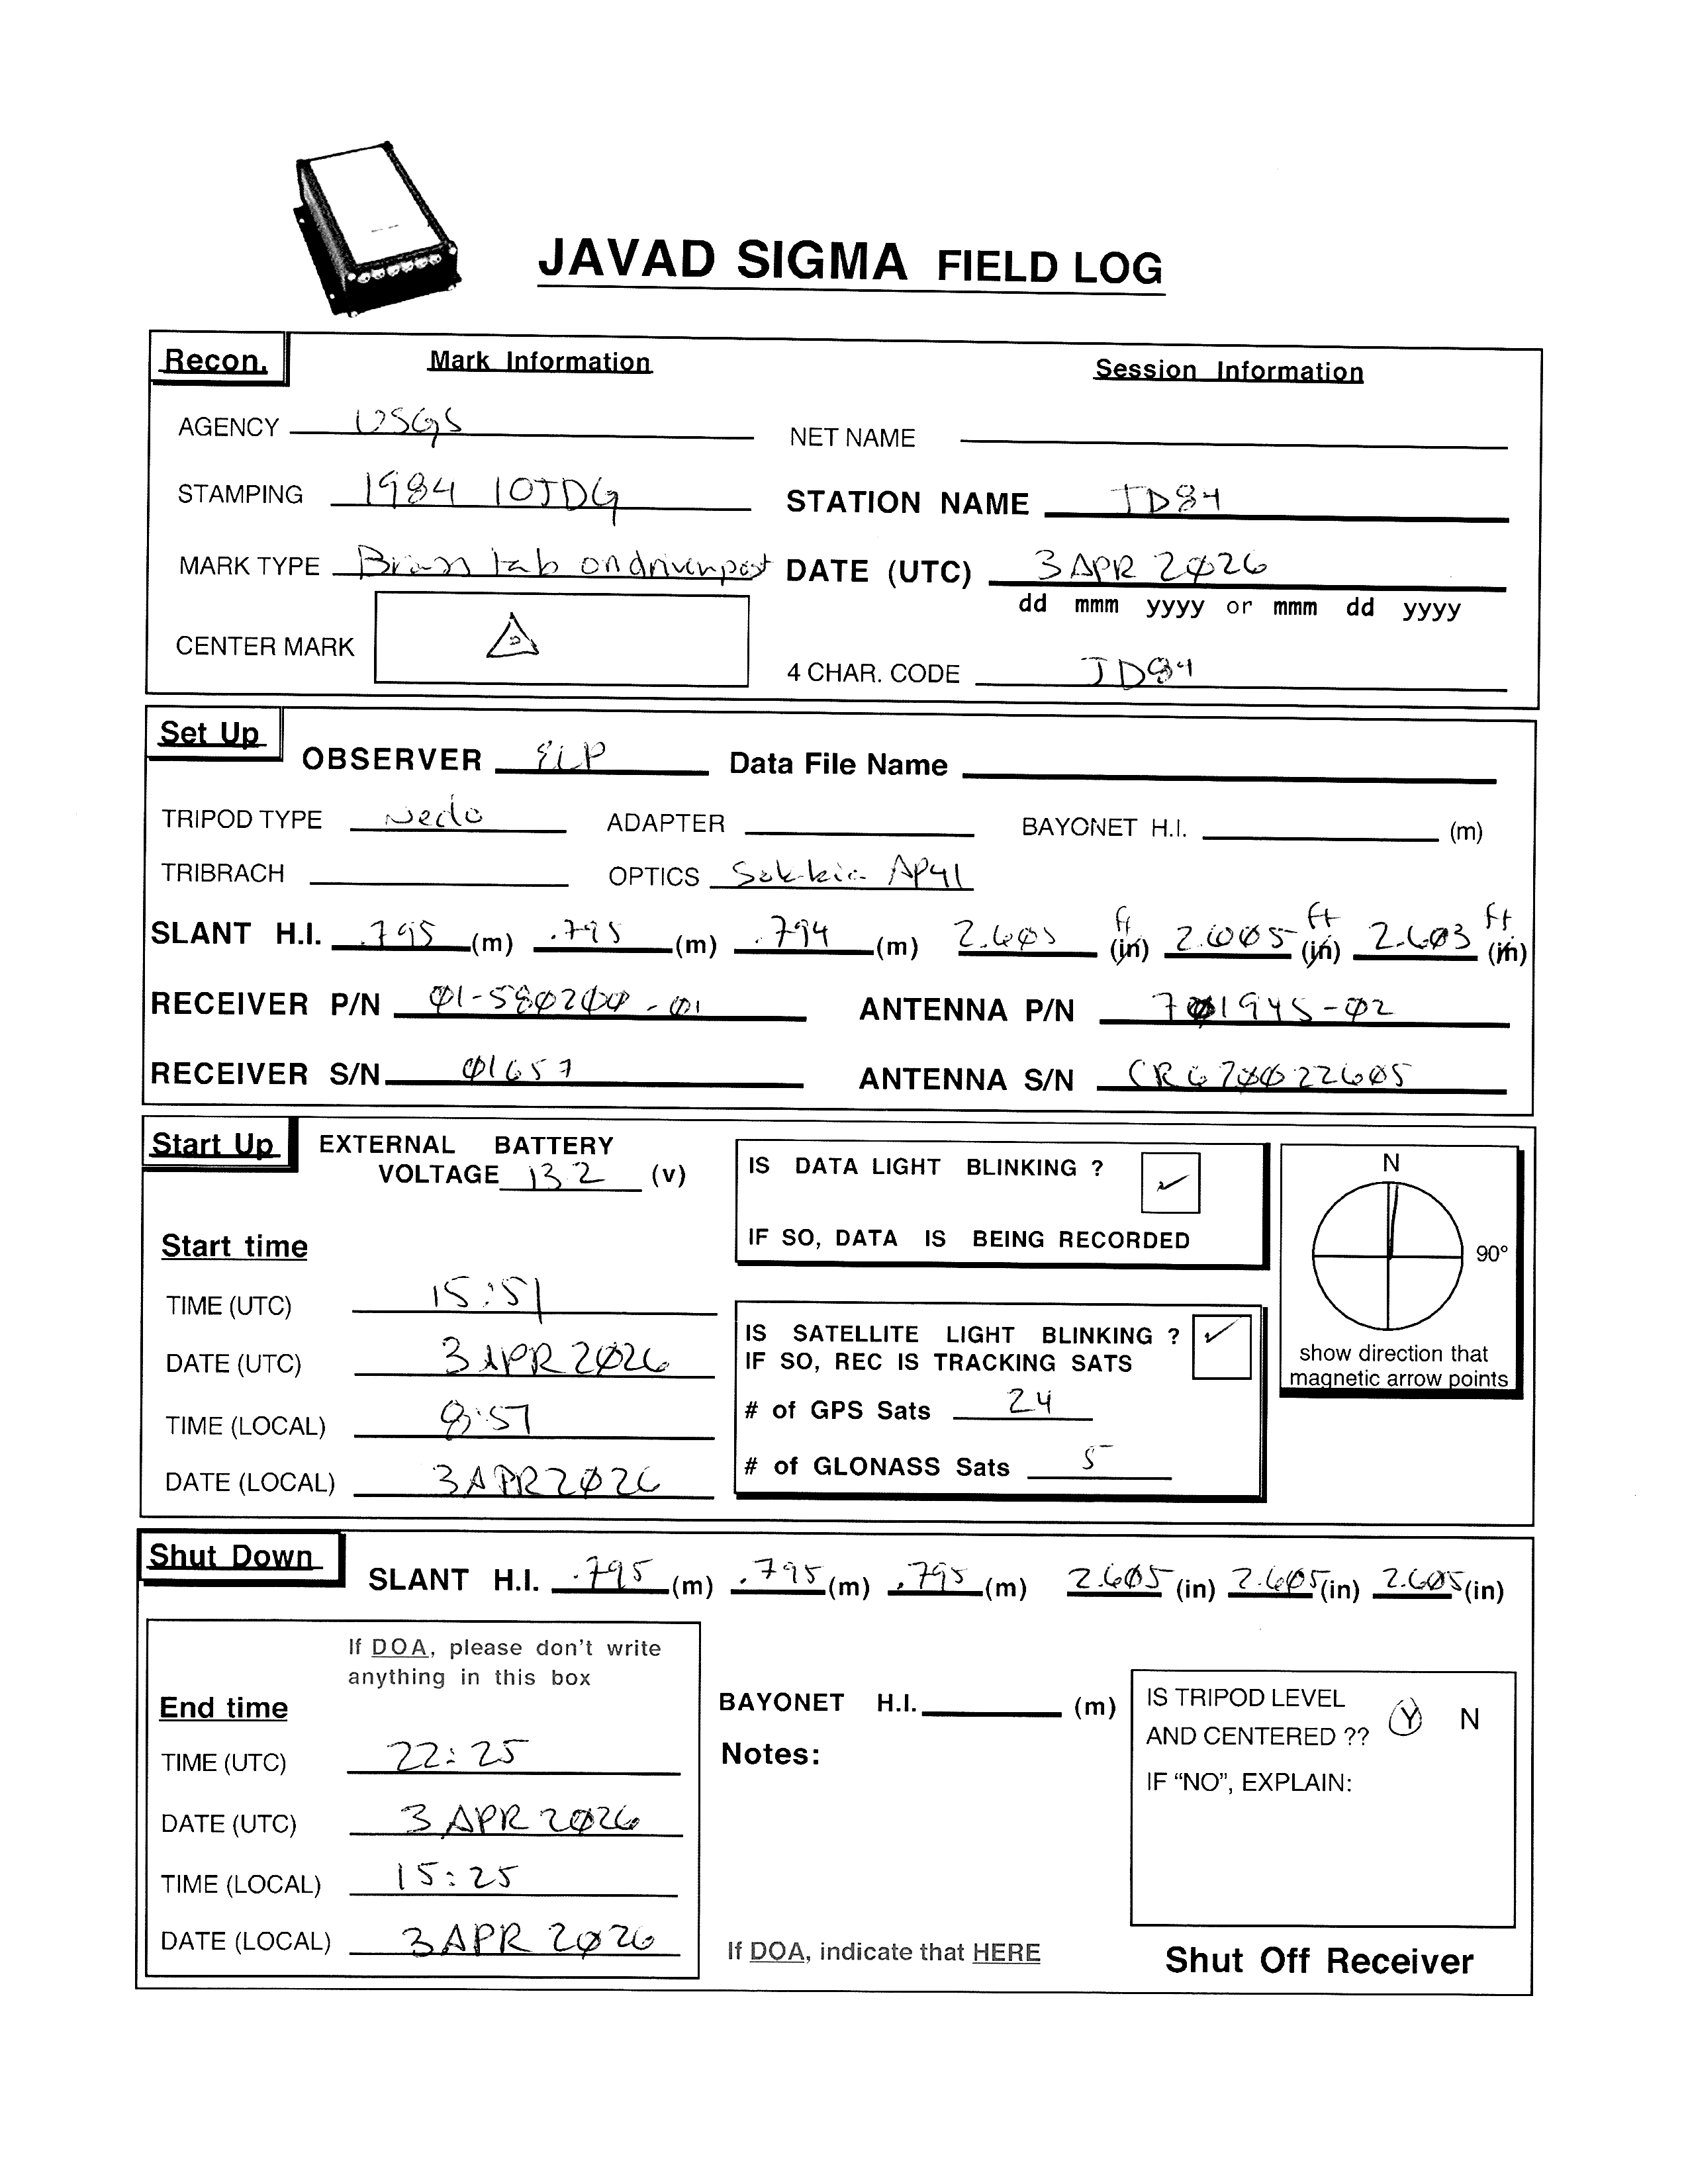 JAVAD SIGMA FIELD LOG
Recon.
Mark Information
Session Information
AGENCY USGS
NET NAME
STAMPING 1984 10JDG
STATION NAME JD84
MARK TYPE Brass tab on driven post
DATE (UTC) 3 APR 2026
dd mmm yyyy or mmm dd yyyy
CENTER MARK
4 CHAR. CODE JD84
Set Up
OBSERVER ELP
Data File Name
TRIPOD TYPE Nedo
ADAPTER
BAYONET H.I. (m)
TRIBRACH
OPTICS Sokkia AP41
SLANT H.I. .795 (m) .795 (m) .794 (m) 2.605 ft (in) 2.6005 ft (in) 2.603 ft (in)
RECEIVER P/N 01-580200-01
ANTENNA P/N 701945-02
RECEIVER S/N 01657
ANTENNA S/N CR620022605
Start Up
EXTERNAL BATTERY
VOLTAGE 13.2 (v)
IS DATA LIGHT BLINKING ? ✓
IF SO, DATA IS BEING RECORDED
N
90°
show direction that
magnetic arrow points
Start time
TIME (UTC) 15:51
DATE (UTC) 3 APR 2026
TIME (LOCAL) 8:51
DATE (LOCAL) 3 APR 2026
IS SATELLITE LIGHT BLINKING ? ✓
IF SO, REC IS TRACKING SATS
# of GPS Sats 24
# of GLONASS Sats 5
Shut Down
SLANT H.I. .795 (m) .795 (m) .795 (m) 2.605 (in) 2.605 (in) 2.605 (in)
If DOA, please don't write
anything in this box
End time
TIME (UTC) 22:25
DATE (UTC) 3 APR 2026
TIME (LOCAL) 15:25
DATE (LOCAL) 3 APR 2026
BAYONET H.I. (m)
Notes:
If DOA, indicate that HERE
IS TRIPOD LEVEL
AND CENTERED ?? Y N
IF "NO", EXPLAIN:
Shut Off Receiver